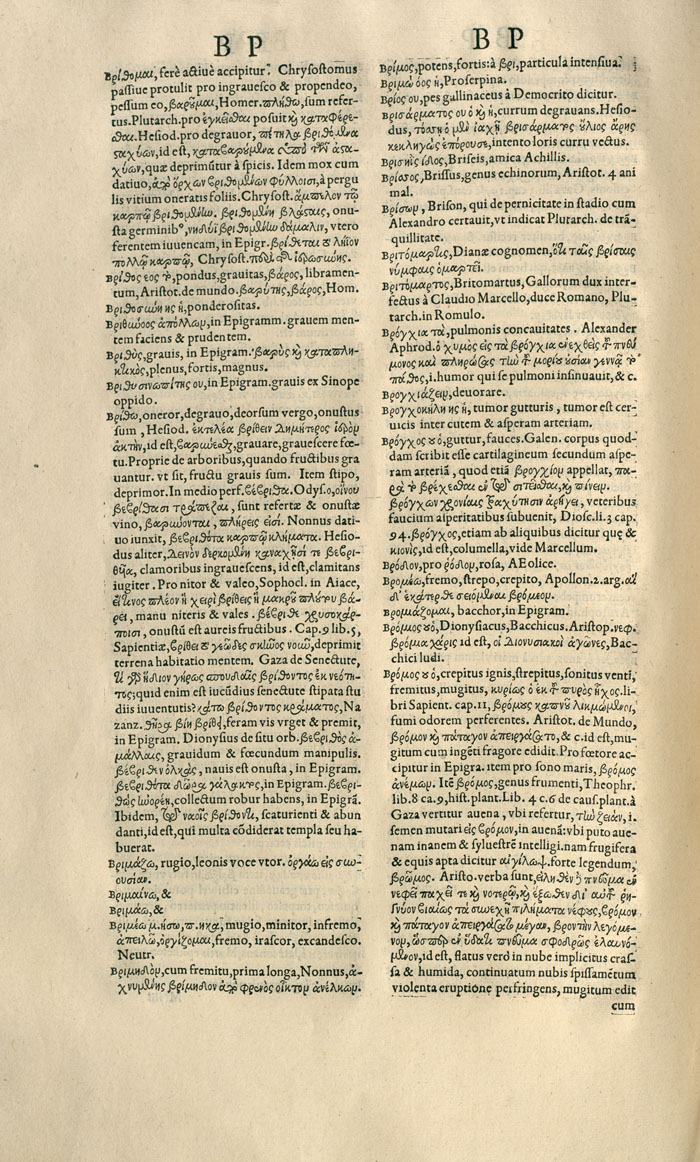 B P
Βρίθομαι, ferè actiuè accipitur. Chrysostomus
passiue protulit pro ingrauesco & propendeo,
pessum eo, βαρῦμαι, Homer. πλήθω, sum refer-
tus. Plutarch. pro ἐγκεῖσθαι posuit καὶ καταφέρε-
σθαι. Hesiod. pro degrauor,
id est, quæ deprimũtur à spicis. Idem mox cum
datiuo, à pergu
lis vitium oneratis foliis. Chrysost. ἄμπελον τῷ
καρπῷ βριθομένην. βριθομένη βλάσταις, onu-
sta germinib', δάμαλιν, vtero
ferentem iuuencam, in Epigr. βρίθεται
πολλῷ καρπῷ, Chrysost.
Βρίθος εος τὸ, pondus, grauitas, βάρος, libramen-
tum, Aristot. de mundo. βαρύτης, βάρος, Hom.
Βριθοσύνης ἡ, ponderositas.
in Epigramm. grauem men-
tem faciens & prudentem.
Βριθὺς, grauis, in Epigram. βαρὺς καὶ καταπλη-
κτικὸς, plenus, fortis, magnus.
Βριθυσινωπίτης ου, in Epigram. grauis ex Sinope
oppido.
Βρίθω, oneror, degrauo, deorsum vergo, onustus
sum, Hesiod. ἐκτελέα βρίθειν Δημήτερος ἱερὸν
ἀκτὴν, id est, grauare, grauescere fœ-
tu. Proprie de arboribus, quando fructibus gra
uantur. vt sit, fructu grauis sum. Item stipo,
deprimor. In medio perf. βέβριθα. Odys. ο, οἴνου
βεβρίθασι τράπεζαι, sunt refertæ & onustæ
vino, βαρύνονται, πλήρεις εἰσί. Nonnus dati-
uo iunxit, βεβριθότα καρπῷ κλήματα. Hesio-
dus aliter, Δεινὸν δερκομένη καναχῇσί τε βεβρι-
θυῖα, clamoribus ingrauescens, id est, clamitans
iugiter. Pro nitor & valeo, Sophocl. in Aiace,
εἴ τινος πλέον ἢ χειρὶ βρίθεις ἢ μακροῦ πλούτου βά-
ρει, manu niteris & vales. βέβριθε χρυσοκάρ-
ποισι, onustũ est aureis fructibus. Cap. 9 lib. 5,
Sapientiæ, βρίθει γεῶδες σκῆνος νοῦν, deprimit
terrena habitatio mentem. Gaza de Senectute,
τί ἥδιον γήρως σπουδαῖς βρίθοντος ἐκ νεότη-
τος; quid enim est iucũdius senectute stipata stu
diis iuuentutis? βρίθοντος κράματος, Na
zanz. θῆρα βίη βρίθει, feram vis vrget & premit,
in Epigram. Dionysius de situ orb. βεβριθὸς ἀ-
μάλλαις, grauidum & fœcundum manipulis.
βέβριθεν ὁλκὰς, nauis est onusta, in Epigram.
βεβριθότα δῶρα γάλακτος, in Epigram. βεβρι-
collectum robur habens, in Epigrã.
Ibidem, ναοῖς βρίθοντι, scaturienti & abun
danti, id est, qui multa cõdiderat templa seu ha-
buerat.
Βριμάζω, rugio, leonis voce vtor. ὀργάω εἰς συν-
ουσίαν.
Βριμαίνω, &
Βριμάω, &
Βριμέω μ. ήσω, π. ηκα, mugio, minitor, infremo,
ἀπειλῶ, ὀργίζομαι, fremo, irascor, excandesco.
Neutr.
Βριμηδὸν, cum fremitu, prima longa, Nonnus, ἀ-
χνυμένης βριμηδὸν ἀπὸ φρενὸς οἶκτον ἀνέλκων.
B P
Βρίμος, potens, fortis: à βρι, particula intensiua.
Βριμὼ όος ἡ, Proserpina.
Βρίος ου, pes gallinaceus à Democrito dicitur.
Βρισάρματος ου ὁ καὶ ἡ, currum degrauans. Hesio-
dus, τόσση ὁ μὲν ἰαχῇ βρισάρματος οὔλιος ἄρης
κεκληγὼς ἐπόρουσε, intento loris curru vectus.
Βρισηὶς ίδος, Briseis, amica Achillis.
Βρίσσος, Brissus, genus echinorum, Aristot. 4 ani
mal.
Βρίσων, Brison, qui de pernicitate in stadio cum
Alexandro certauit, vt indicat Plutarch. de trã-
quillitate.
Βριτόμαρτις, Dianæ cognomen, ὅτι ταῖς βρίσαις
νύμφαις ὁμαρτεῖ.
Βριτόμαρτος, Britomartus, Gallorum dux inter-
fectus à Claudio Marcello, duce Romano, Plu-
tarch. in Romulo.
Βρόγχια τὰ, pulmonis concauitates. Alexander
Aphrod. ὁ χυμὸς εἰς τὰ βρόγχια
μονος καὶ πληρώσας γεννᾷ τὸ
πάθος, i. humor qui se pulmoni insinuauit, & c.
Βρογχιάζειν, deuorare.
Βρογχοκήλη ης ἡ, tumor gutturis, tumor est cer-
uicis inter cutem & asperam arteriam.
Βρόγχος ου ὁ, guttur, fauces. Galen. corpus quod-
dam scribit esse cartilagineum secundum aspe-
ram arteriã, quod etiã βρογχίον appellat, πα-
ρὰ τὸ βρέχεσθαι ἐν τῷ σιτεῖσθαι καὶ πίνειν.
veteribus
faucium asperitatibus subuenit, Diosc. li. 3 cap.
94. βρόγχος, etiam ab aliquibus dicitur quę &
κιονὶς, id est, columella, vide Marcellum.
Βρόδον, pro ῥόδον, rosa, AEolice.
Βρομέω, fremo, strepo, crepito, Apollon. 2. arg. αἱ
δ' ἑκάτερθε σειόμεναι βρόμεον.
Βρομιάζομαι, bacchor, in Epigram.
Βρόμιος ου ὁ, Dionysiacus, Bacchicus. Aristop. νεφ.
βρομία χάρις id est, οἱ Διονυσιακοὶ ἀγῶνες, Bac-
chici ludi.
Βρόμος ου ὁ, crepitus ignis, strepitus, sonitus venti,
fremitus, mugitus, κυρίως ὁ ἐκ τοῦ πυρὸς ἦχος. li-
bri Sapient. cap. 11, βρόμους καπνοῦ λικμώμενοι,
fumi odorem perferentes. Aristot. de Mundo,
βρόμον καὶ πάταγον ἀπειργάσατο, & c. id est, mu-
gitum cum ingẽti fragore edidit. Pro fœtore ac-
cipitur in Epigra. item pro sono maris, βρόμος
ἀνέμων. Itẽ βρόμος, genus frumenti, Theophr.
lib. 8 ca. 9, hist. plant. Lib. 4 c. 6 de caus. plant. à
Gaza vertitur auena, vbi refertur, τὴν ζειὰν, i.
semen mutari εἰς βρόμον, in auenã: vbi puto aue-
nam inanem & syluestrẽ intelligi. nam frugifera
& equis apta dicitur αἰγίλωψ. forte legendum,
βρῶμος. Aristo. verba sunt, εἰληθὲν δὲ πνεῦμα ἐν
νέφει παχεῖ τε καὶ νοτερῷ, καὶ ἐξωσθὲν δι' αὐτοῦ ῥη-
γνύον βιαίως τὰ συνεχῆ πιλήματα νέφους, βρόμον
καὶ πάταγον ἀπειργάσατο μέγαν, βροντὴν λεγόμε-
νον, ὥσπερ ἐν ὕδατι πνεῦμα σφοδρῶς ἐλαυνό-
μενον, id est, flatus verò in nube implicitus cras-
sa & humida, continuatum nubis spissamẽtum
violenta eruptione perfringens, mugitum edit
cum